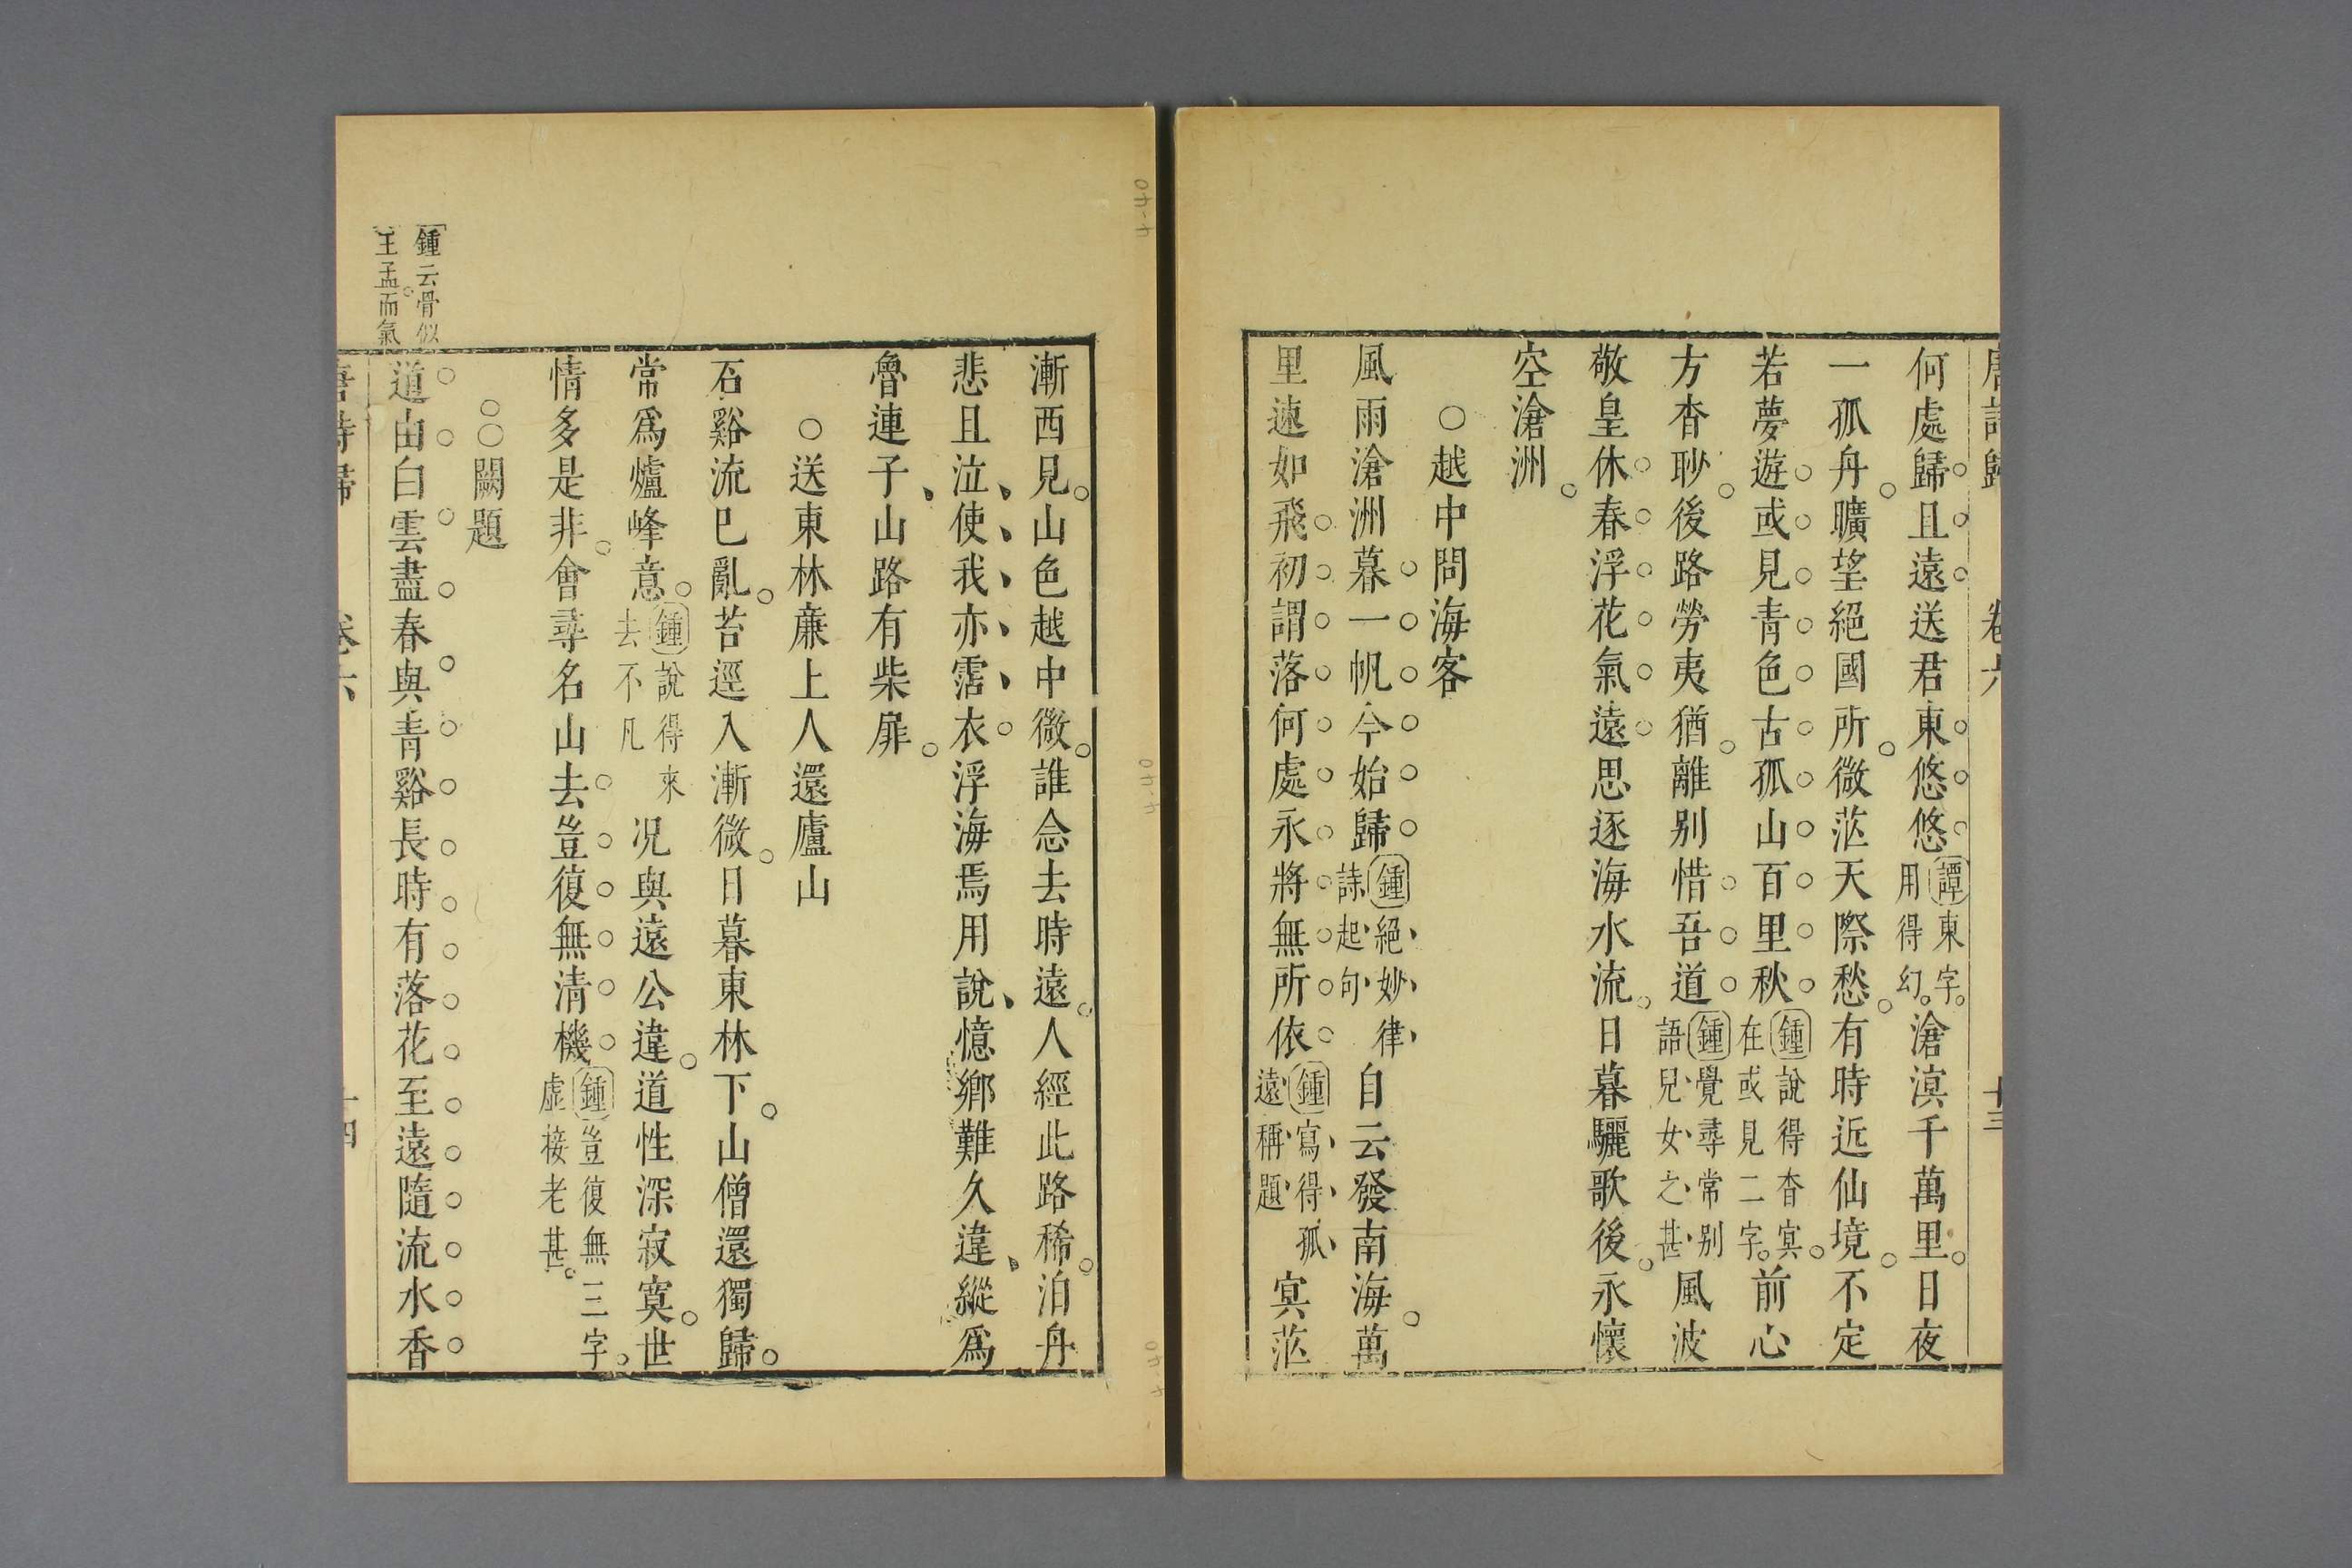 唐詩歸 卷六 十三
何處歸且遠送君東悠悠譚東字用得幻滄溟千萬里日夜
一孤舟曠望絕國所微茫天際愁有時近仙境不定
若夢遊或見青色古孤山百里秋鍾說得杳冥在或見二字前心
方杳眇後路勞夷猶離別惜吾道鍾覺尋常別語兒女之甚風波
敬皇休春浮花氣遠思逐海水流日暮驪歌後永懷
空滄洲
○越中問海客
風雨滄洲暮一帆今始歸鍾絕妙律詩起句自云發南海萬
里速如飛初謂落何處永將無所依鍾寫得孤遠稱題冥茫
漸西見山色越中微誰念去時遠人經此路稀泊舟
悲且泣使我亦霑衣浮海焉用說憶鄉難久違縱爲
魯連子山路有柴扉
○送東林廉上人還廬山
石谿流已亂苔逕入漸微日暮東林下山僧還獨歸
常爲爐峰意鍾說得來去不凡况與遠公違道性深寂寞世
情多是非會尋名山去豈復無清機鍾豈復無三字虛接老甚
○○闕題
道由白雲盡春與青谿長時有落花至遠隨流水香
鍾云骨似
王孟而氣
唐詩歸 卷六 十四